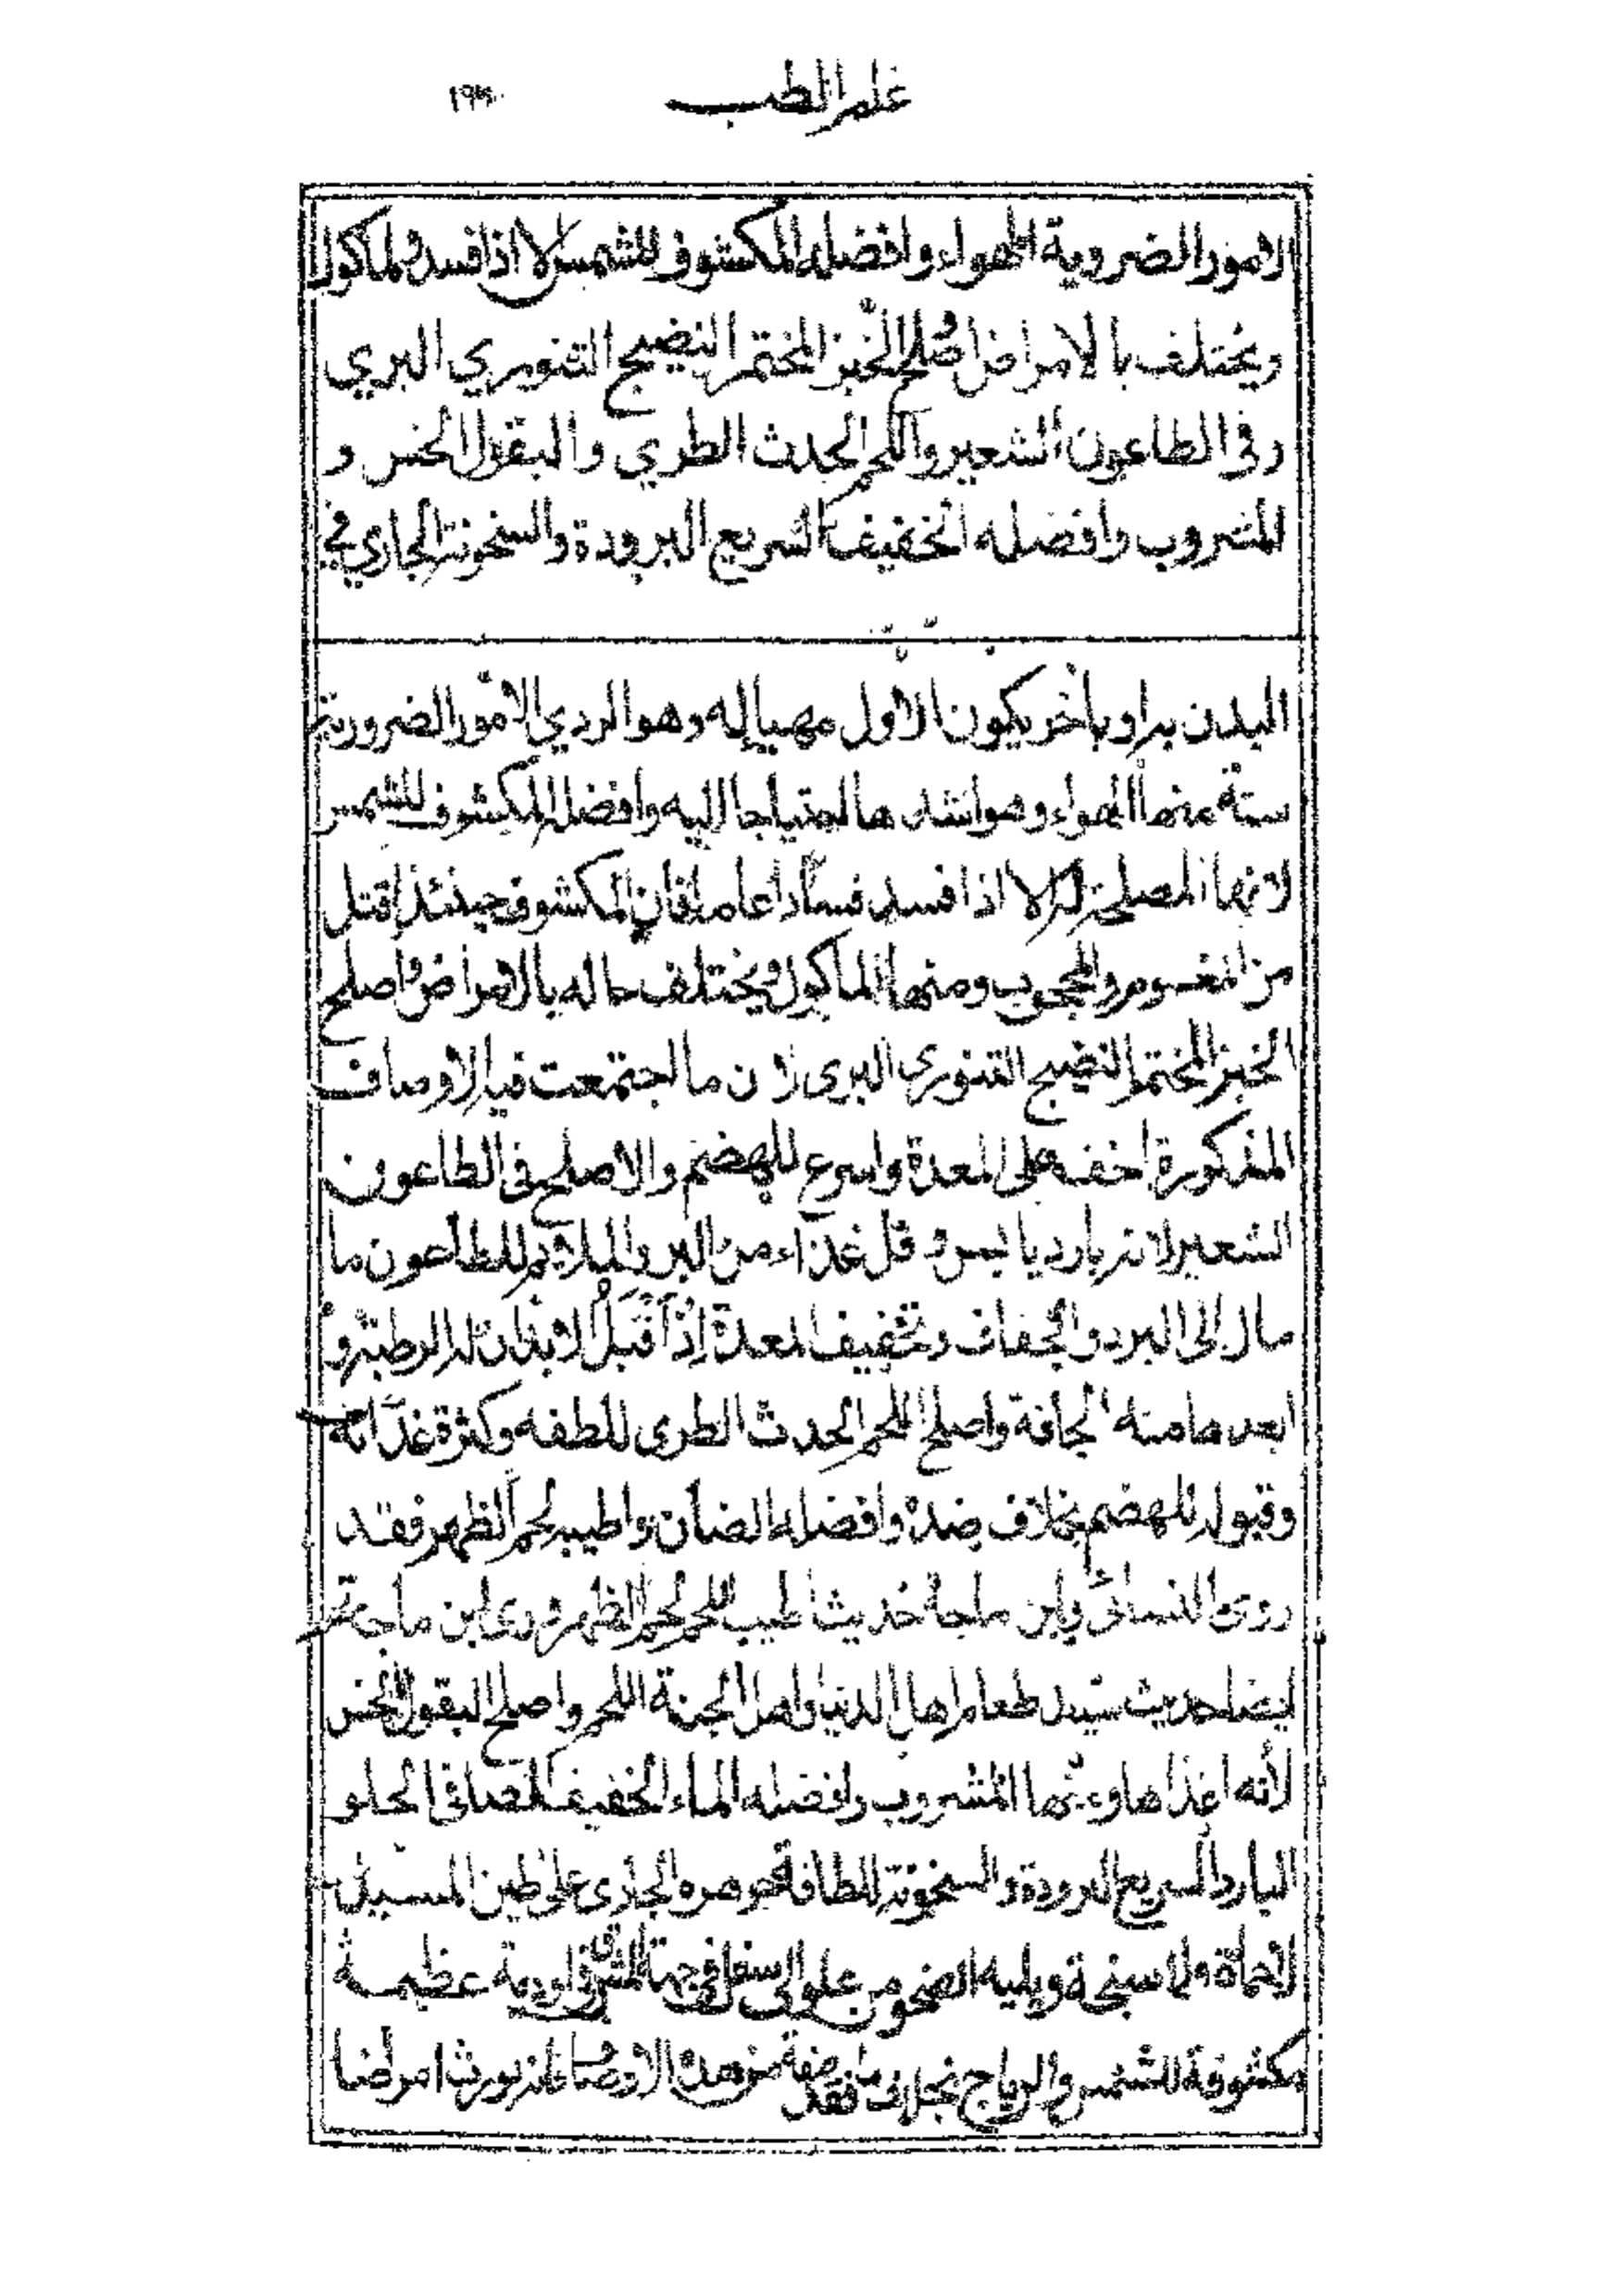 علم الطب ١٩٣
الامور الضروية الهواء وافضله المكشوف للشمس لا اذا فسد والماكول
ويختلف بالامراض واصلح الخبز المختمر النضيج التنوري البري
وفى الطاعون الشعير واللحم الحدث الطري والبقول الخس و
المشروب وافضله الخفيف السريع البرودة والسخونة الجاري في
البدن به او بآخر يكون الاول مهيا له وهو الردي الامور الضرورية
ستة منها الهواء وهو اشدها احتياجا اليه وافضله المكشوف للشمس
لانها المصلحة له لا اذا فسد فسادا عاما فان المكشوف حينئذ اقتل
من المغموم والمحجوب ومنها الماكول ويختلف حاله بالامراض واصلح
الخبز المختمر النضيج التنورى البرى لان ما اجتمعت فيه الاوصاف
المذكورة اخف على المعدة واسرع للهضم والاصلح فى الطاعون
الشعير لانه بارد يابس واقل غذاء من البر والملايم للطاعون ما
مال الى البرد والجفاف وتخفيف المعدة اذ اقبل الابدان له الرطبة و
ابعدها منه الجافة واصلح اللحم الحدث الطرى للطفه وكثرة غذائه
وقبوله للهضم بخلاف ضده وافضله الضان واطيبه لحم الظهر فقد
روى النسائى وابن ماجة حديث اطيب اللحم لحم الظهر وروى ابن ماجة
ايضا حديث سيد طعام اهل الدنيا واهل الجنة اللحم واصلح البقول الخس
لأنه اغذاها ومنها المشروب وافضله الماء الخفيف الصافى الحلو
البارد السريع البرودة والسخونة للطافة جوهره الجارى على طين المسيل
لا حماة ولا سبخة ويليه الصخر من علو الى سفل فى جهة المشرق اودية عظيمة
مكشوفة للشمس والرياح بخلاف ما فقد صفة من هذه الاوصاف فانه يورث امراضا